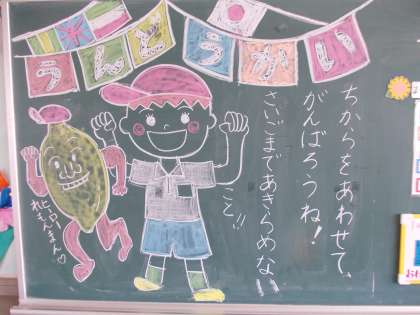 うんどうかい
ちからをあわせて、
がんばろうね!
さいごまであきらめない
こと!!
ヒーロー
れもんまん♡